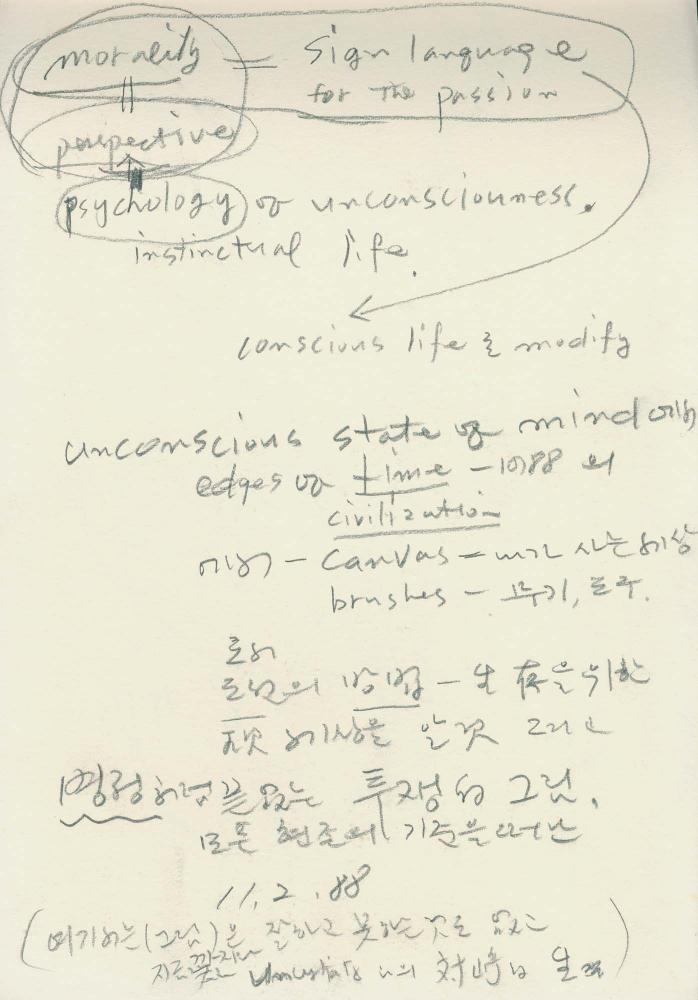 morality = Sign language
for the passion
perspective
psychology of unconsciouness.
instinctual life.
conscious life를 modify
unconscious state of mind에서
edges of time - 1988의
civilization
에서 - canvas = 내가 사는 세상
brushes - 무기, 도구.
로서
도전의 방법 - 生存을 위한
세상을 알것 그리고
명령처럼 끝없는 투쟁的 그림.
모든 현존의 기준을 떠난
11. 2. 88
(여기서는(그림)은 잘하고 못하는 것도 없고
나의 対峙的